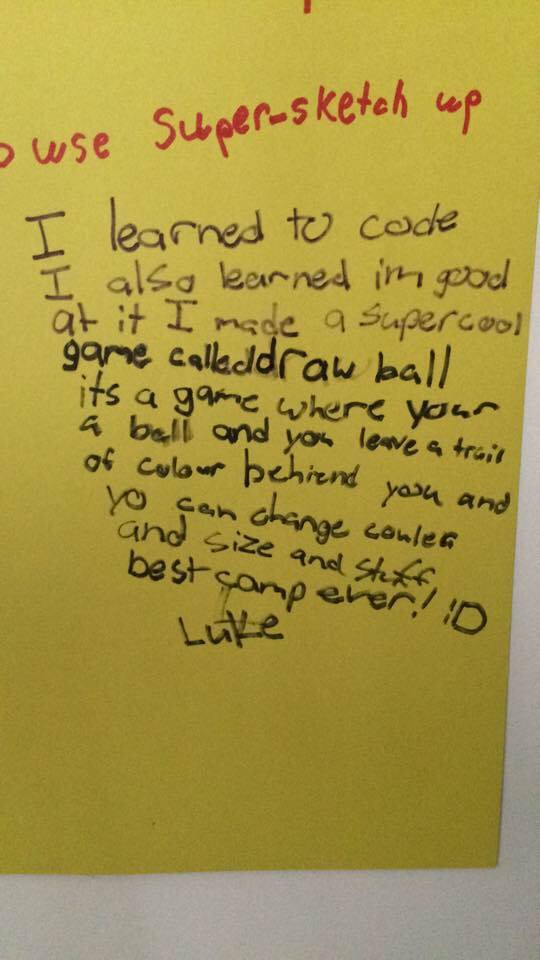 o use Super-sketch up
I learned to code
I also learned im good
at it I made a supercool
game calleddraw ball
its a game where your
a ball and you leave a trail
of colour behiend you and
yo can change couler
and size and stuff
best camp ever! :D
Luke